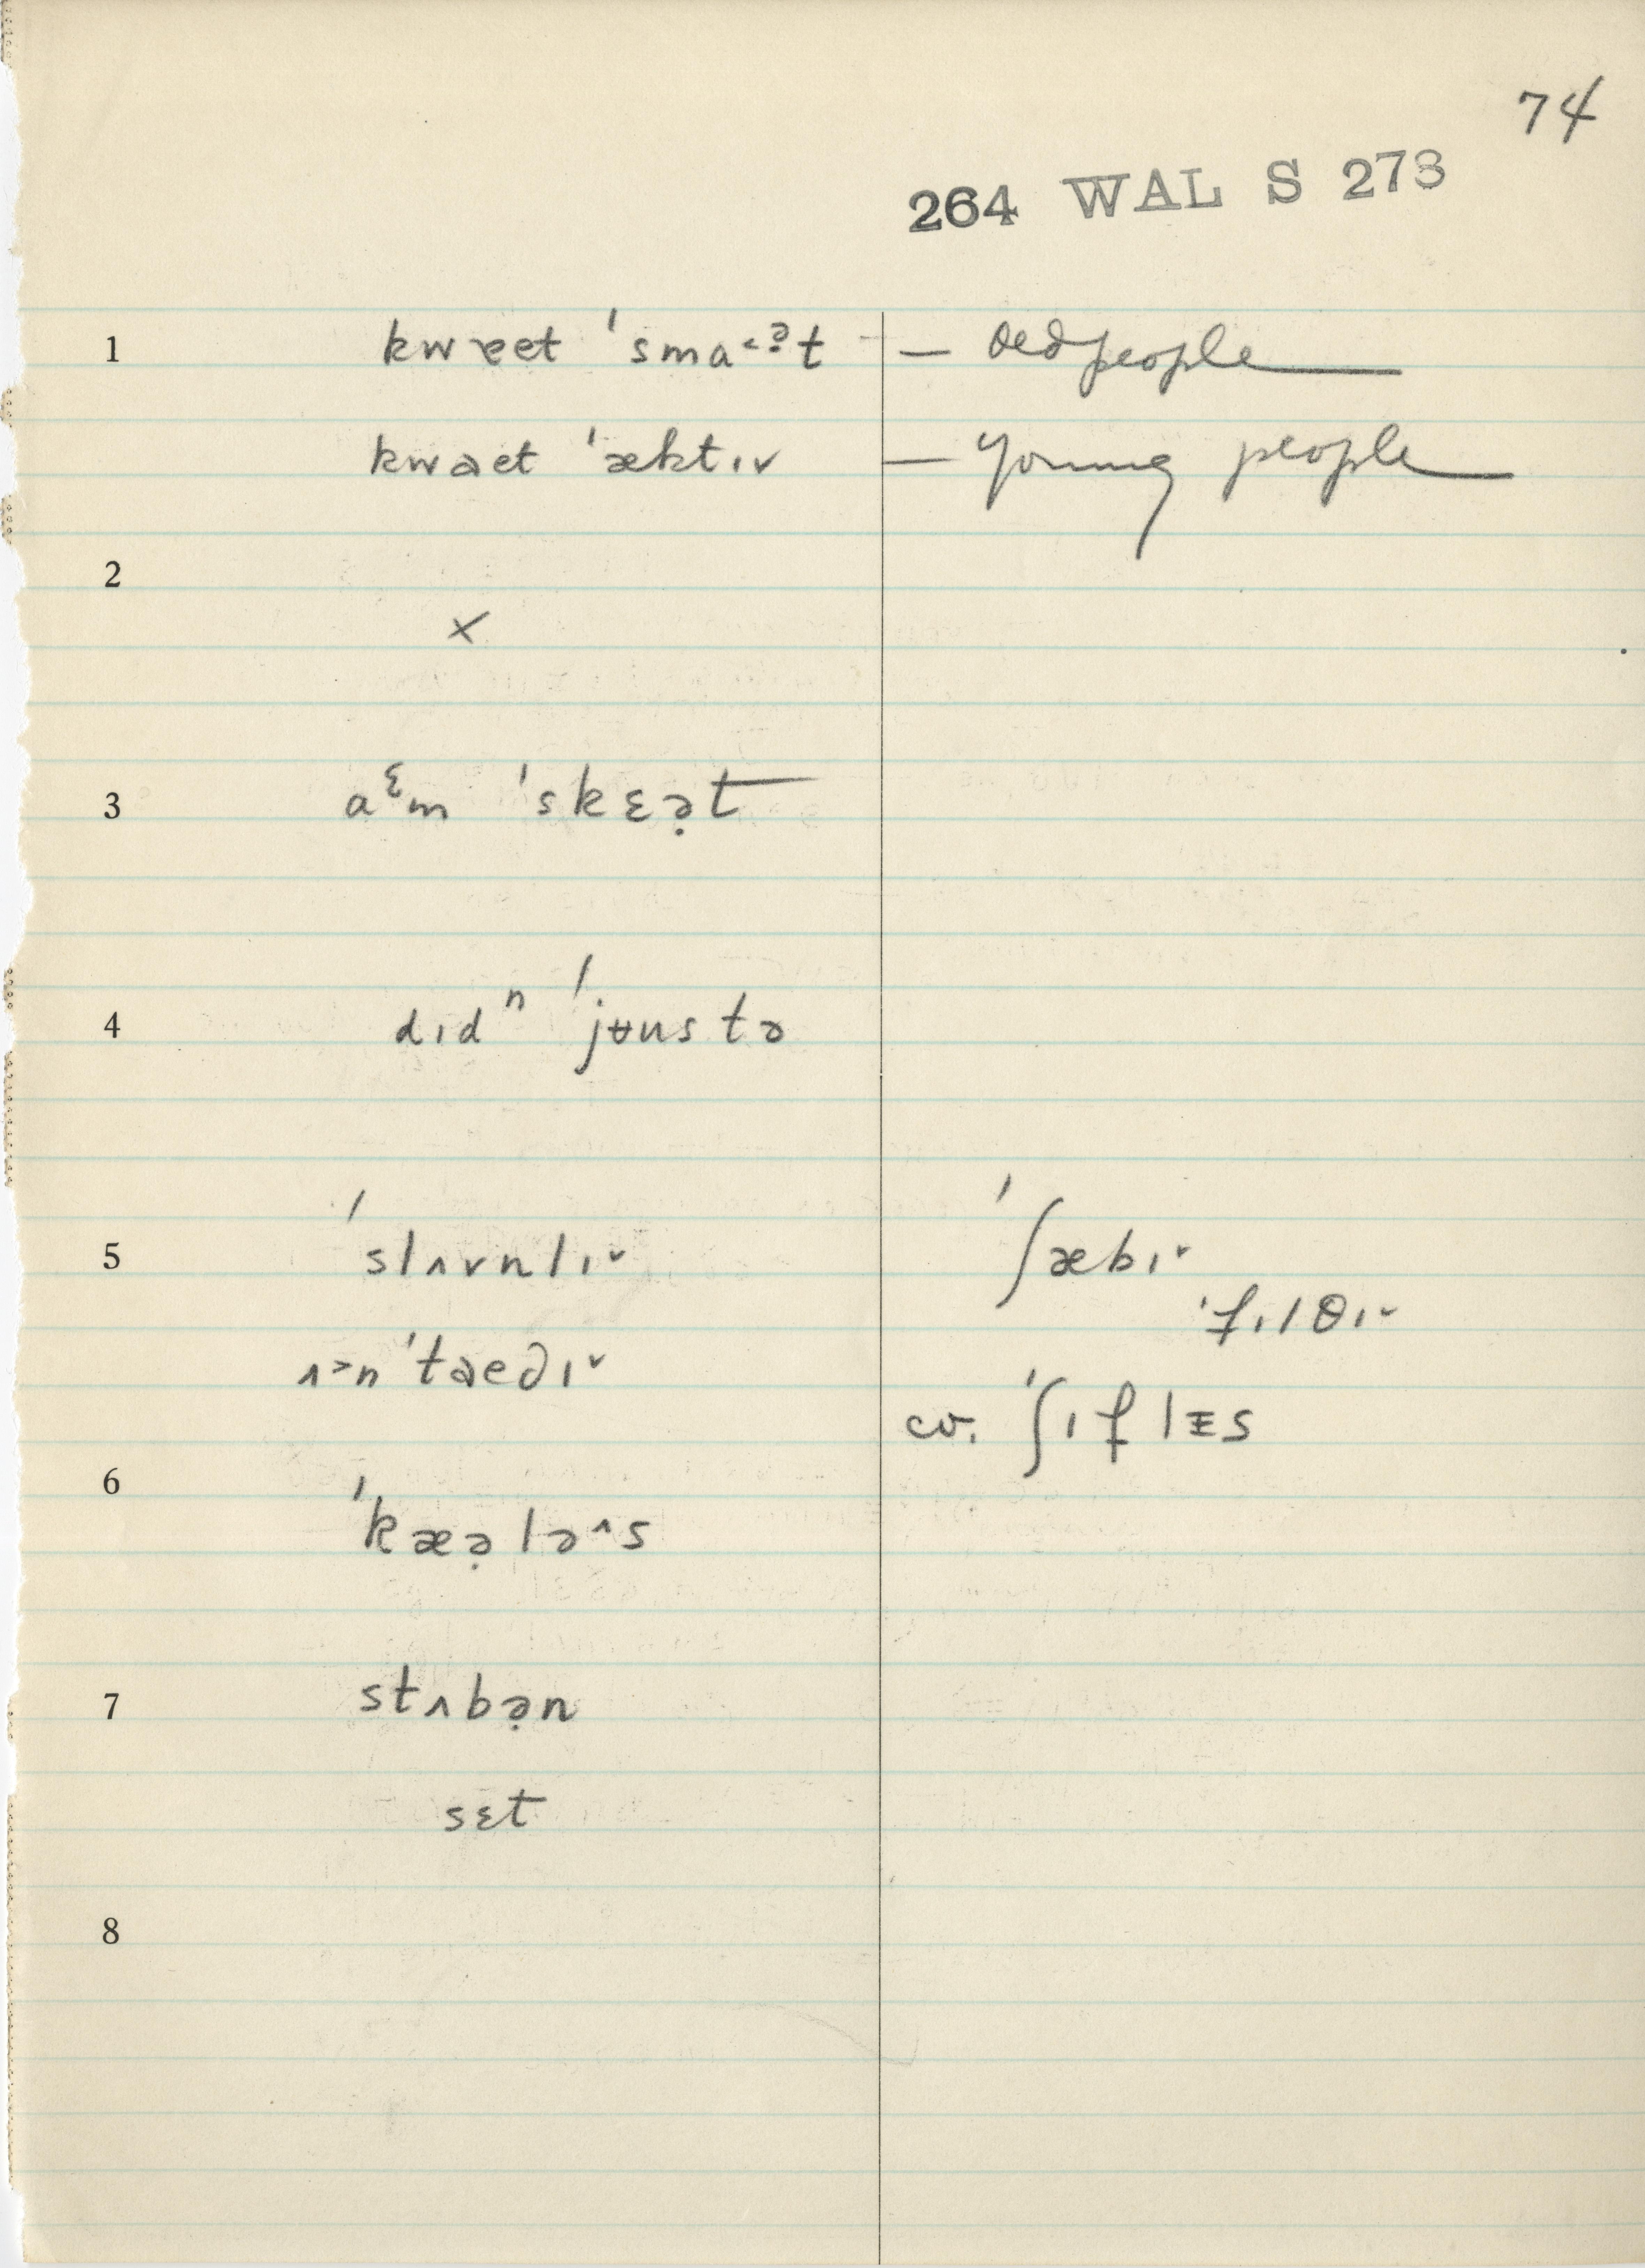 74
264 WAL S 273
1 kwɐet ˈsma˂ə̣t — old people
kwaet ˈæktɪ˅ — young people
2
×
3 aᵋm ˈskɛə̣t
4 dɪdⁿ ˈjʉustə
5 ˈslʌvnlɪ˅ ˈʃæbɪ˅
ˈfɪlθɪ˅
ʌ˃nˈtaedɪ˅
cv. ˈʃɪflᵻs
6
ˈkæə̣lə˄s
7 stʌbə̣n
sɛt
8